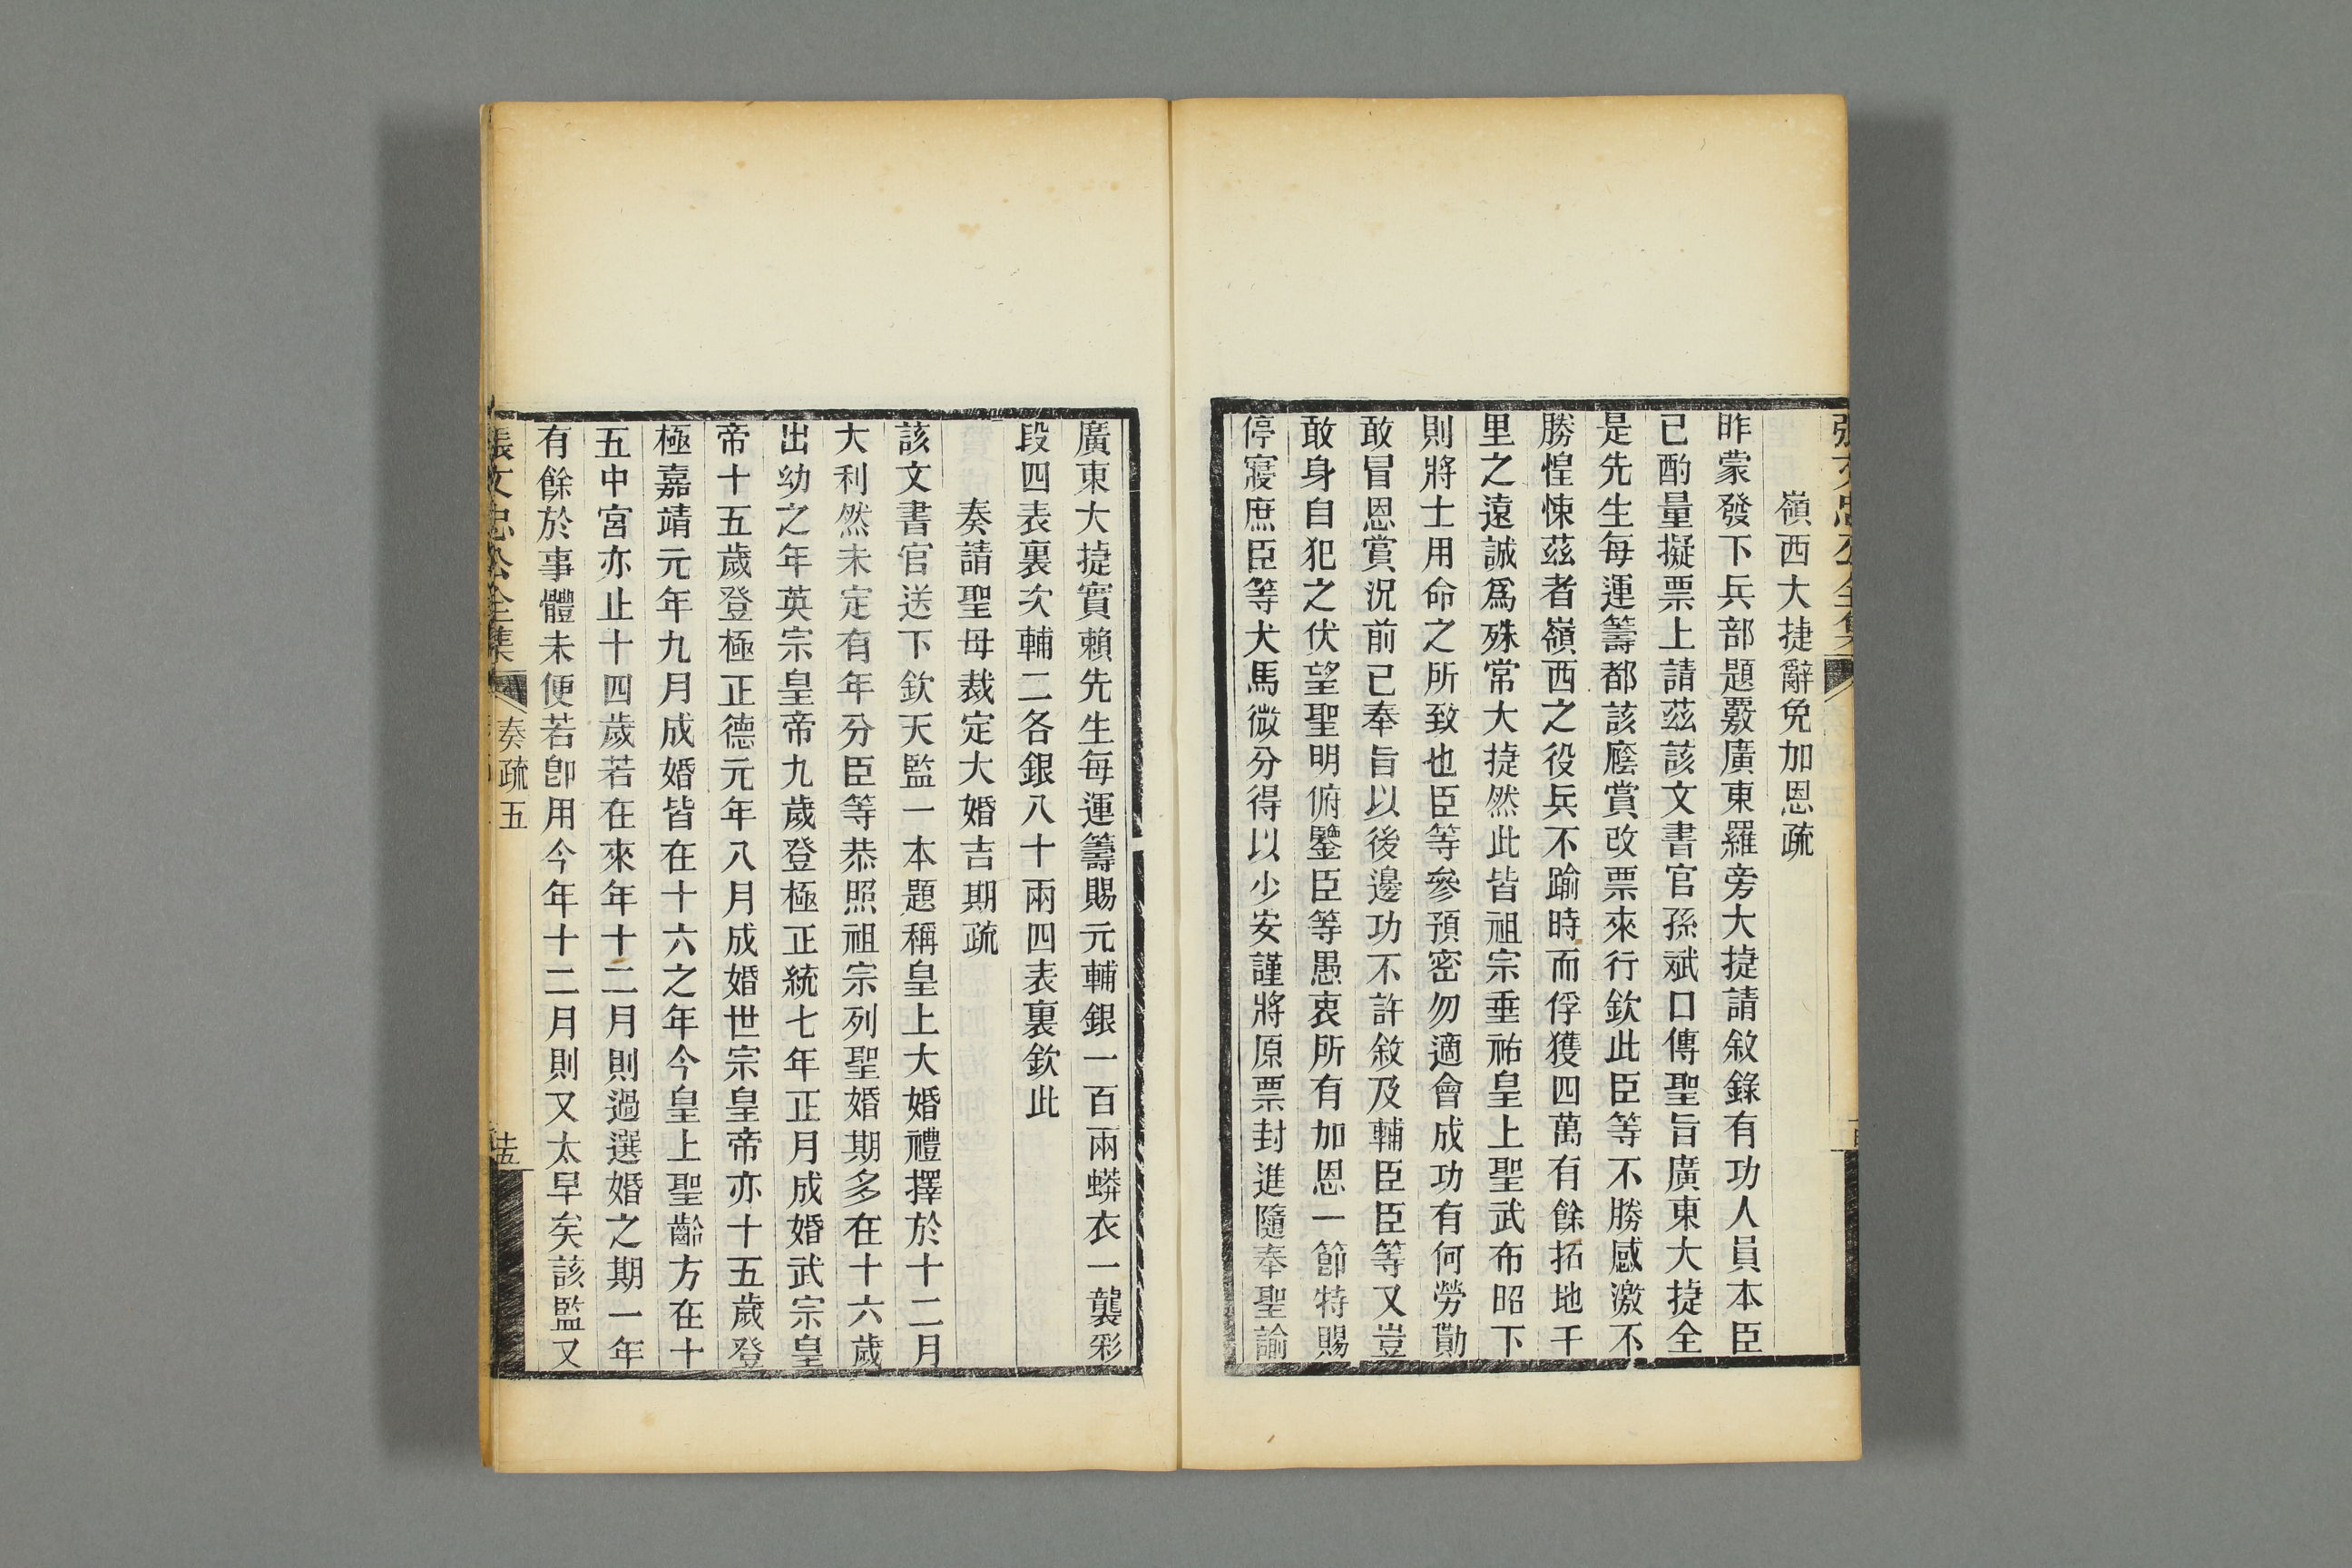 張文忠公全集
嶺西大捷辭免加恩疏
昨蒙發下兵部題覈廣東羅旁大捷請敘錄有功人員本臣
已酌量擬票上請茲該文書官孫斌口傳聖旨廣東大捷全
是先生每運籌都該廕賞改票來行欽此臣等不勝感激不
勝惶悚茲者嶺西之役兵不踰時而俘獲四萬有餘拓地千
里之遠誠爲殊常大捷然此皆祖宗垂祐皇上聖武布昭下
則將士用命之所致也臣等參預密勿適會成功有何勞勩
敢冒恩賞況前已奉旨以後邊功不許敘及輔臣臣等又豈
敢身自犯之伏望聖明俯鑒臣等愚衷所有加恩一節特賜
停寢庶臣等犬馬微分得以少安謹將原票封進隨奉聖諭
廣東大捷實賴先生每運籌賜元輔銀一百兩蟒衣一襲彩
段四表裏次輔二各銀八十兩四表裏欽此
奏請聖母裁定大婚吉期疏
該文書官送下欽天監一本題稱皇上大婚禮擇於十二月
大利然未定有年分臣等恭照祖宗列聖婚期多在十六歲
出幼之年英宗皇帝九歲登極正統七年正月成婚武宗皇
帝十五歲登極正德元年八月成婚世宗皇帝亦十五歲登
極嘉靖元年九月成婚皆在十六之年今皇上聖齡方在十
五中宮亦止十四歲若在來年十二月則過選婚之期一年
有餘於事體未便若卽用今年十二月則又太早矣該監又
張文忠公全集 奏疏五 十五